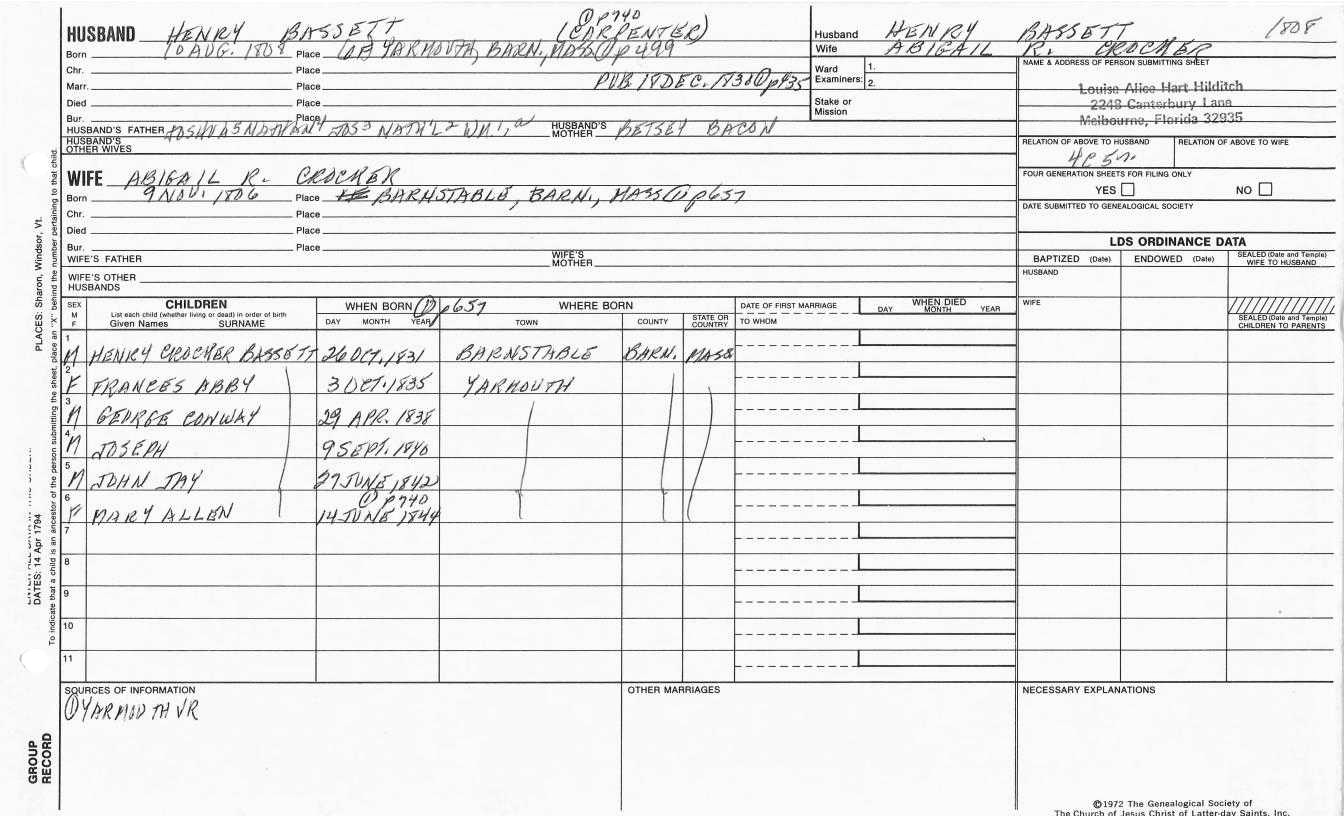 ① p740
HUSBAND HENRY BASSETT (CARPENTER)
Born 10 AUG. 1808 Place OF YARMOUTH, BARN., MASS ① p499
Chr. Place
Marr. Place PUB 18 DEC. 1830 ① p435
Died Place
Bur. Place
HUSBAND'S FATHER JOSHUA5 NATHAN4 JOS3 NATH'L2 WM1, HUSBAND'S MOTHER BETSEY BACON
HUSBAND'S OTHER WIVES
WIFE ABIGAIL R. CROCKER
Born 9 NOV. 1806 Place BARNSTABLE, BARN., MASS ① p657
Chr. Place
Died Place
Bur. Place
WIFE'S FATHER WIFE'S MOTHER
WIFE'S OTHER HUSBANDS
Husband HENRY BASSETT 1808
Wife ABIGAIL R. CROCKER
Ward Examiners: 1.
2.
Stake or Mission
NAME & ADDRESS OF PERSON SUBMITTING SHEET
Louise Alice Hart Hilditch
2248 Canterbury Lane
Melbourne, Florida 32935
RELATION OF ABOVE TO HUSBAND RELATION OF ABOVE TO WIFE
4C5r
FOUR GENERATION SHEETS FOR FILING ONLY
YES NO
DATE SUBMITTED TO GENEALOGICAL SOCIETY
LDS ORDINANCE DATA
BAPTIZED (Date) ENDOWED (Date) SEALED (Date and Temple) WIFE TO HUSBAND
HUSBAND
WIFE
SEALED (Date and Temple) CHILDREN TO PARENTS
SEX M F CHILDREN WHEN BORN ① p657 WHERE BORN DATE OF FIRST MARRIAGE WHEN DIED
List each child (whether living or dead) in order of birth
Given Names SURNAME DAY MONTH YEAR TOWN COUNTY STATE OR COUNTRY TO WHOM DAY MONTH YEAR
1 M HENRY CROCHER BASSETT 26 OCT. 1831 BARNSTABLE BARN. MASS
2 F FRANCES ABBY 3 OCT. 1835 YARMOUTH
3 M GEORGE CONWAY 29 APR. 1838
4 M JOSEPH 9 SEPT. 1840
5 M JOHN JAY 27 JUNE 1842
① p740
6 F MARY ALLEN 14 JUNE 1844
7
8
9
10
11
SOURCES OF INFORMATION OTHER MARRIAGES NECESSARY EXPLANATIONS
① YARMOUTH VR
©1972 The Genealogical Society of
The Church of Jesus Christ of Latter-day Saints, Inc.
GROUP RECORD
DATES: 14 Apr 1794
PLACES: Sharon, Windsor, Vt.
To indicate that a child is an ancestor of the person submitting the sheet, place an "X" behind the number pertaining to that child.